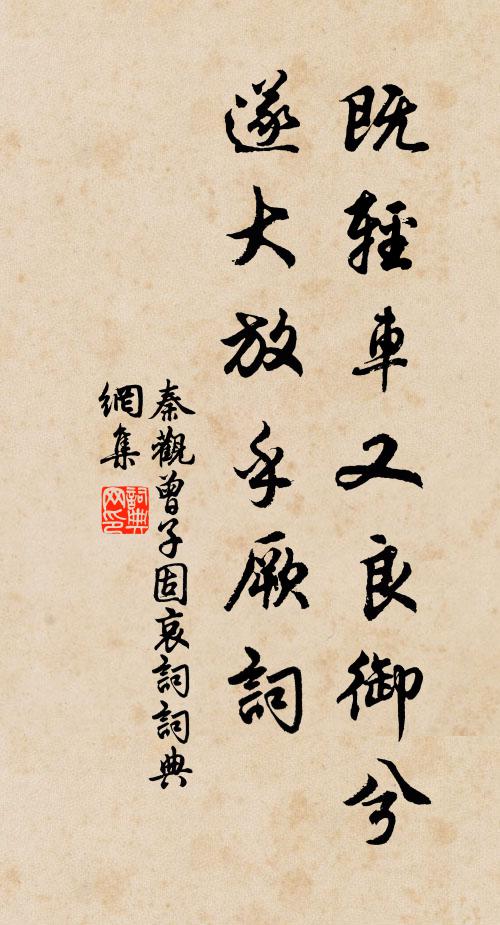 既輕車又良御兮
遂大放乎厥詞
秦觀曾子固哀詞詞典
網集
詞典网印